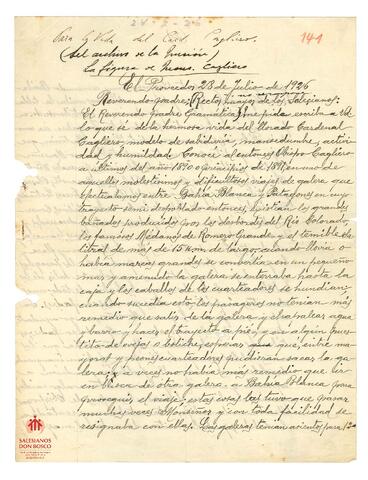 24-2-26
Para la Vida del Card. Cagliero.
141
Del archivo de la Inspección
La figura de Mons. Cagliero
El Proveedor 23 de Julio de 1926
Reverendo padre: Rector mayor de los Salesianos.
El Reverendo padre Grammatica me pide escriba a Ud.
lo que sé de la hermosa vida del llorado Cardenal
Cagliero, modelo de sabiduría, mansedumbre, activi-
dad y humildad. Conocí al entonces Obispo Cagliero
a últimos del año 1890 o principios de 1891 en uno de
aquellos molestísimos y dificultosos viajes de galera que
efectuábamos entre Bahía Blanca y Patagones en un
trayecto semi desploblado entonces, existían los grandes
bañados producidos por los desbordes del Río Colorado,
los famosos Médanos de Romero Grande y el temible Sa-
litral de más de 15 km de largo, cuando llovía o
había mareas grandes se convertía en un pequeño
mar, y a menudo la galera se enterraba hasta la
caja y los caballos de los cuarteadores se hundían;
cuando sucedía esto, los pasageros no tenían más
remedio que salir de la galera y chapalear agua
y barro y hacer el trayecto a pié, y en algún pues-
tito de ovejas o boliche, esperar que, entre ma-
yoral y peones cuarteadores pudieran sacar la ga-
lera; a veces no había más remedio que ir
en busca de otra galera, a Bahía Blanca para
proseguir el viaje; estas cosas las tuvo que pasar
muchas veces Monseñor y con toda facilidad se
resignaba con ellas. Las galeras tenían asientos para 12
SALESIANOS
DON BOSCO